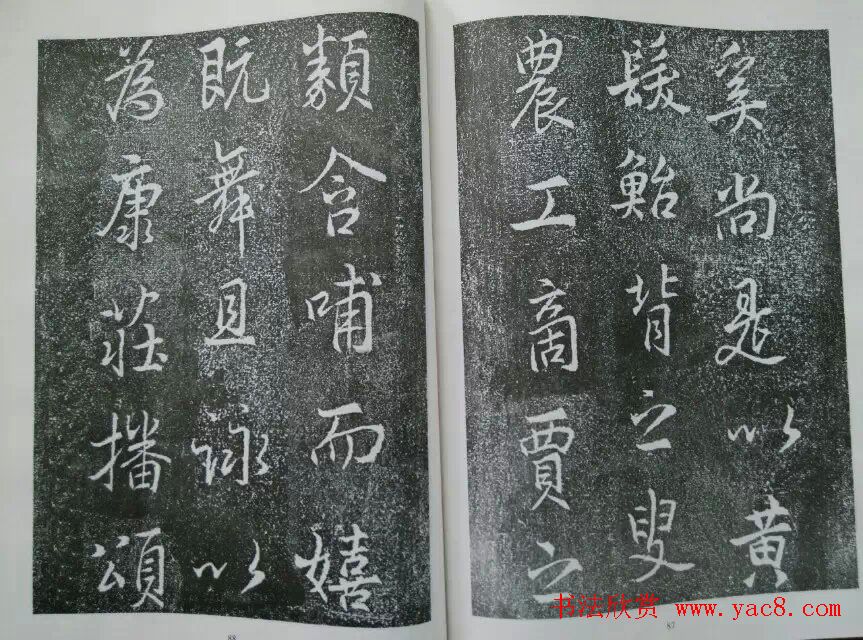 奚尚是以黄
髮鮐背之叟
農工商賈之
類含哺而嬉
既舞且詠以
為康莊播頌
88
87
书法欣赏 www.yac8.com